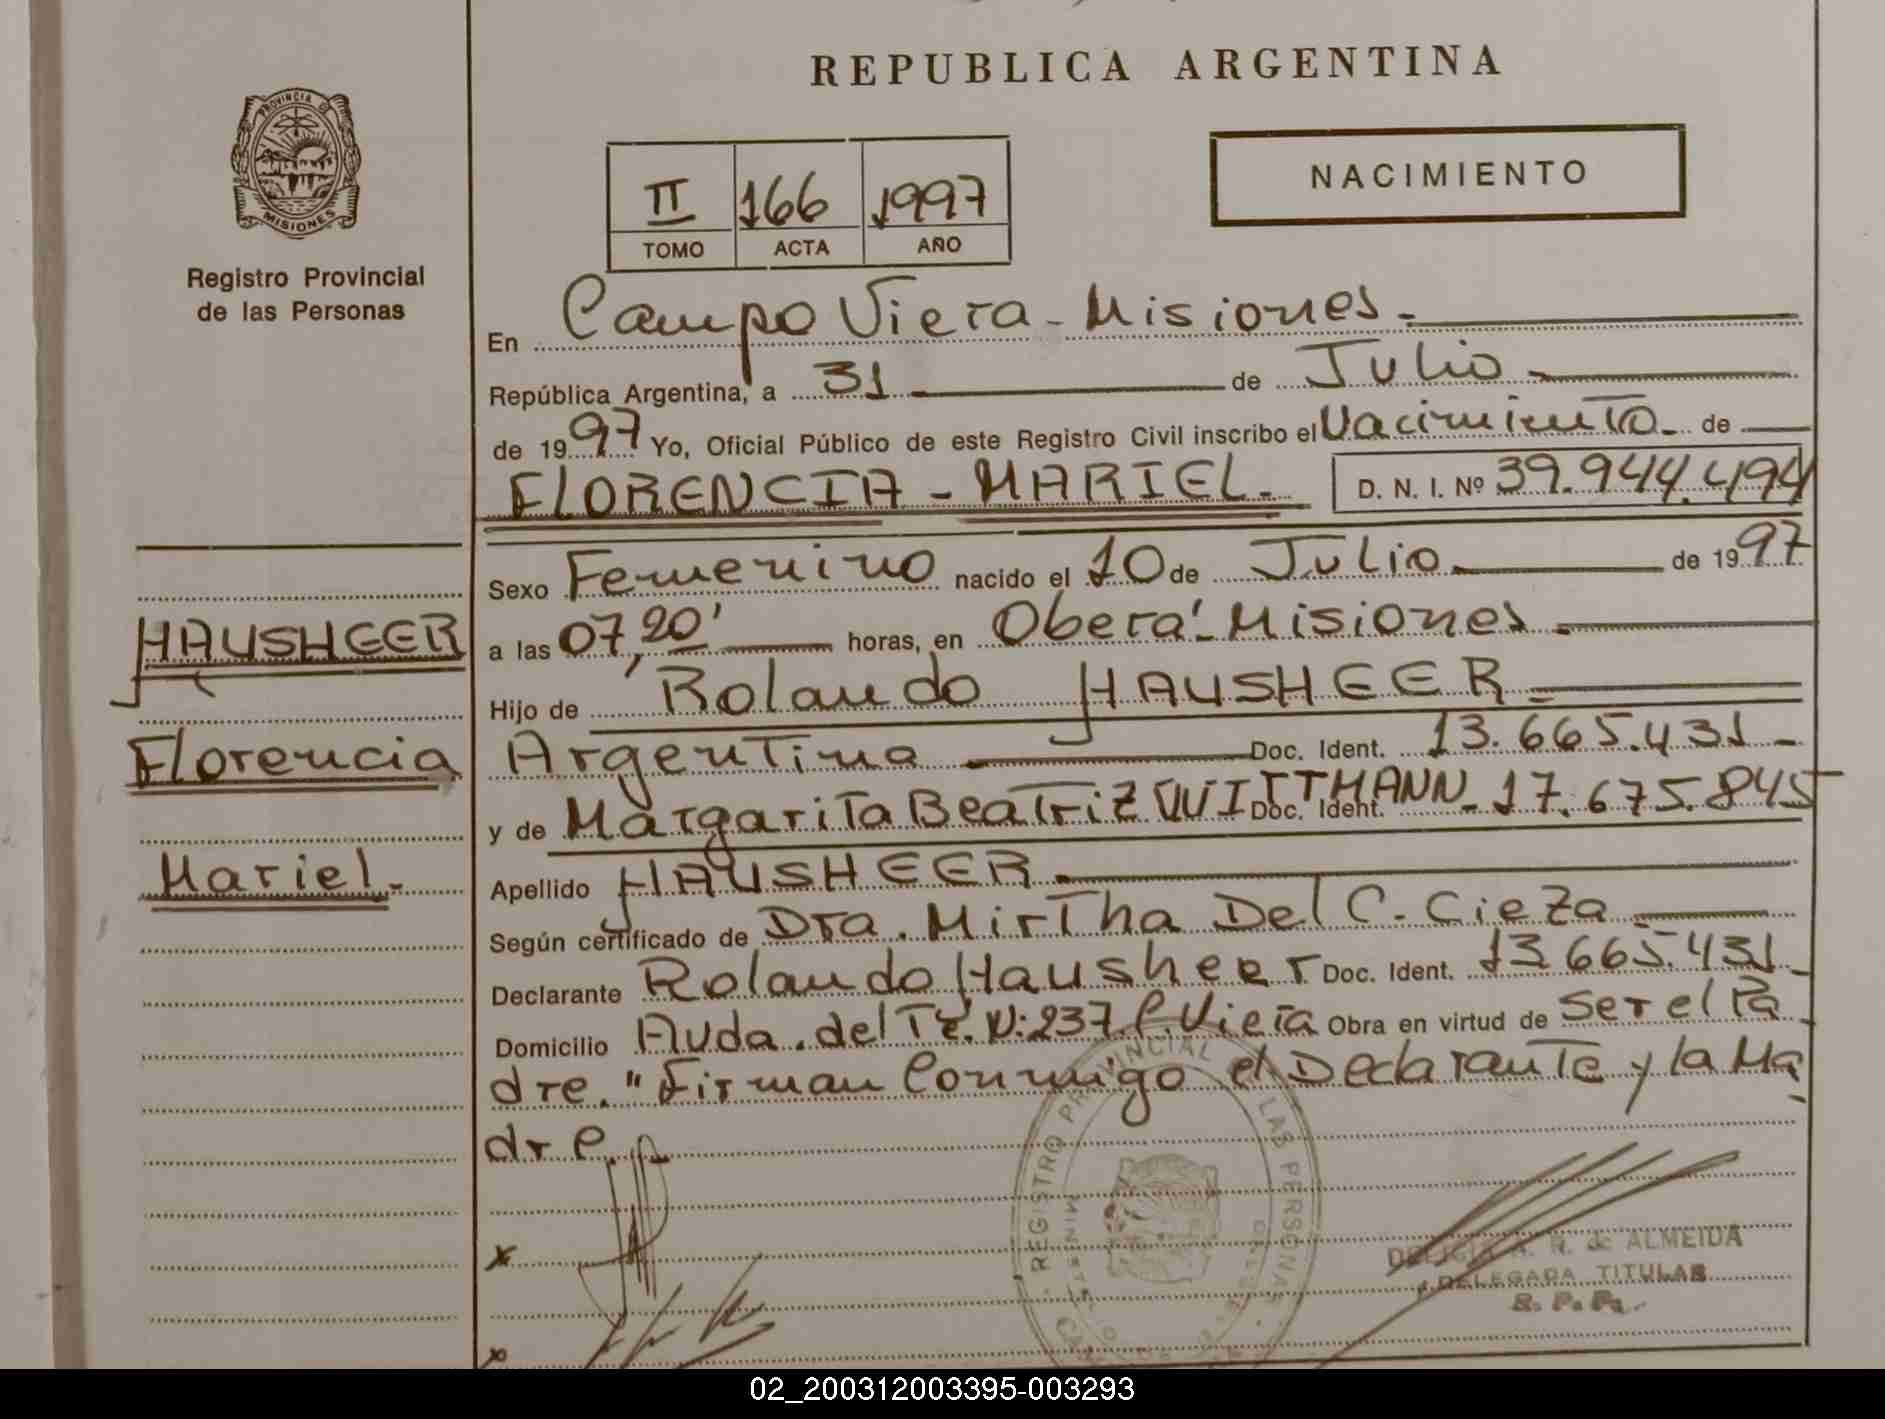 REPUBLICA ARGENTINA
PROVINCIA DE
MISIONES
Registro Provincial
de las Personas
II 166 1997
TOMO ACTA AÑO
NACIMIENTO
En Campo Viera - Misiones.
República Argentina, a 31 de Julio
de 1997 Yo, Oficial Público de este Registro Civil inscribo el Nacimiento de
FLORENCIA - MARIEL. D. N. I. Nº 39.944.494
Sexo Femenino nacido el 10 de Julio de 1997
a las 07,20' horas, en Oberá - Misiones
Hijo de Rolando HAUSHEER
Argentino Doc. Ident. 13.665.431
y de Margarita Beatriz WITTMANN Doc. Ident. 17.675.845
Apellido HAUSHEER
Según certificado de Dra. Mirtha Del C. Cieza
Declarante Rolando Hausheer Doc. Ident. 13.665.431
Domicilio Avda. del Té. N: 237. C. Viera Obra en virtud de Ser el Pa
dre. "Firman Conmigo el Declarante y la Ma
dre.
HAUSHEER
Florencia
Mariel.
REGISTRO PROVINCIAL LAS PERSONAS
A. R. de ALMEIDA
DELEGADA TITULAR
R. P. P.
02_200312003395-003293